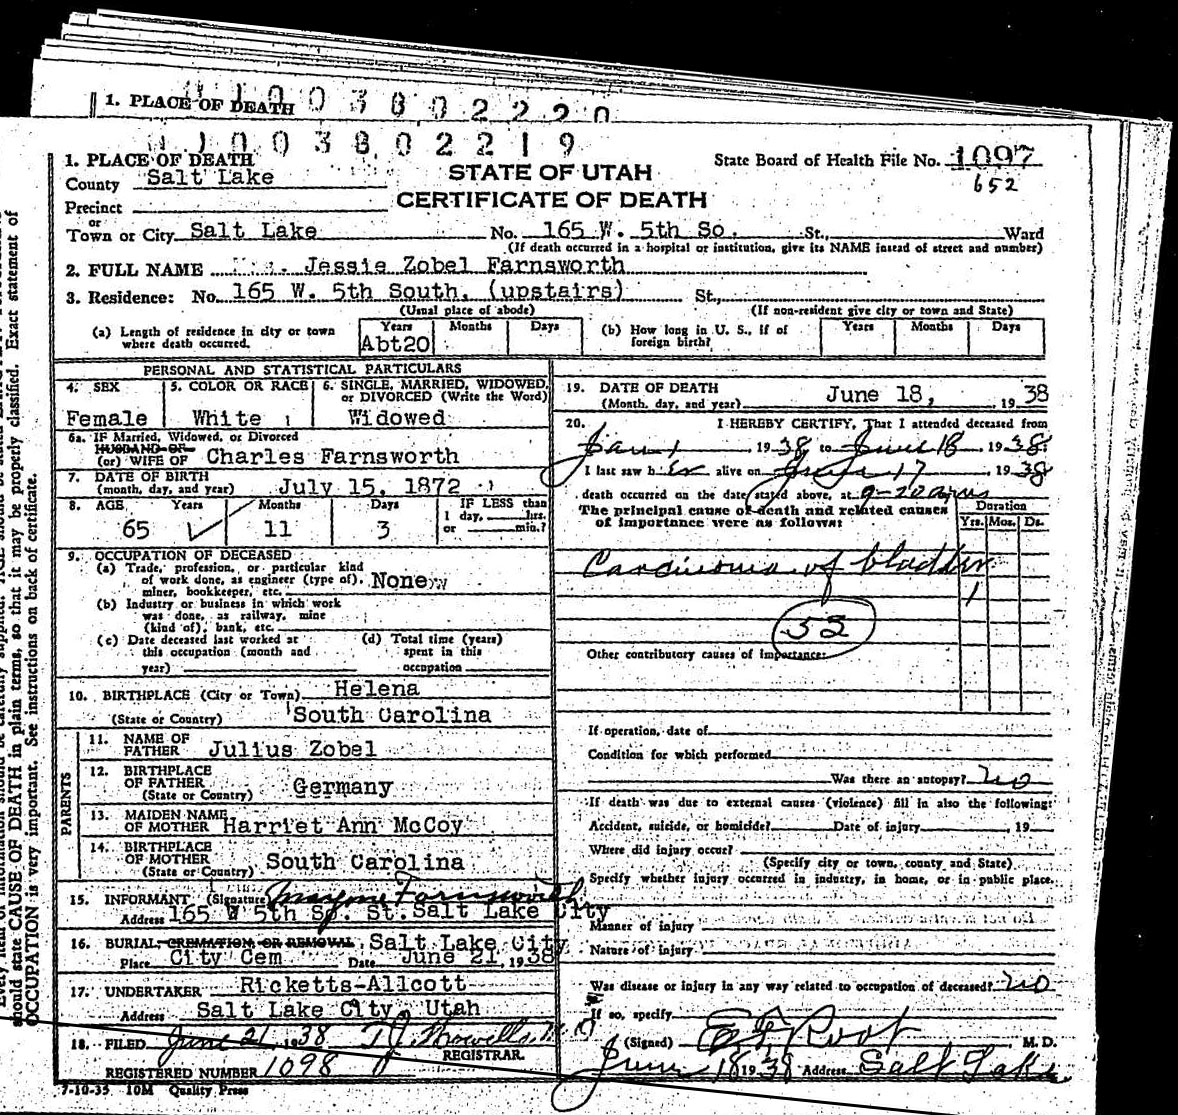 1. PLACE OF DEATH 0 0 3 8 0 2 2 2 0
1 0 0 3 8 0 2 2 1 9
1. PLACE OF DEATH
County Salt Lake
STATE OF UTAH
CERTIFICATE OF DEATH
State Board of Health File No. 1097
652
Precinct
or
Town or City Salt Lake No. 165 W. 5th So. St., Ward
(If death occurred in a hospital or institution, give its NAME instead of street and number)
2. FULL NAME Jessie Zobel Farnsworth
3. Residence: No. 165 W. 5th South, (upstairs) St.,
(Usual place of abode) (If non-resident give city or town and State)
(a) Length of residence in city or town where death occurred. Years Abt20 Months Days
(b) How long in U. S., if of foreign birth? Years Months Days
PERSONAL AND STATISTICAL PARTICULARS
4. SEX Female
5. COLOR OR RACE White
6. SINGLE, MARRIED, WIDOWED, or DIVORCED (Write the Word) Widowed
6a. IF Married, Widowed, or Divorced
HUSBAND OF
(or) WIFE OF Charles Farnsworth
7. DATE OF BIRTH
(month, day, and year) July 15, 1872
8. AGE Years Months Days IF LESS than
1 day, hrs.
or min.?
65 11 3
9. OCCUPATION OF DECEASED
(a) Trade, profession, or particular kind
of work done, as engineer (type of),
miner, bookkeeper, etc. None
(b) Industry or business in which work
was done, as railway, mine
(kind of), bank, etc.
(c) Date deceased last worked at
this occupation (month and
year)
(d) Total time (years)
spent in this
occupation
10. BIRTHPLACE (City or Town) Helena
(State or Country) South Carolina
PARENTS
11. NAME OF FATHER Julius Zobel
12. BIRTHPLACE OF FATHER
(State or Country) Germany
13. MAIDEN NAME OF MOTHER Harriet Ann McCoy
14. BIRTHPLACE OF MOTHER
(State or Country) South Carolina
15. INFORMANT (Signature) Farnsworth
Address 165 W 5th So. St. Salt Lake City
16. BURIAL, CREMATION OR REMOVAL Salt Lake City
Place City Cem Date June 21, 1938
17. UNDERTAKER Ricketts-Allcott
Address Salt Lake City, Utah
18. FILED June 21 1938
REGISTRAR.
REGISTERED NUMBER 1098
7-10-35 10M Quality Press
19. DATE OF DEATH
(Month, day, and year) June 18, 1938
20. I HEREBY CERTIFY, That I attended deceased from
Jan 1 1938, to June 18 1938
I last saw her alive on June 17, 1938
death occurred on the date stated above, at 9-20 am
The principal cause of death and related causes
of importance were as follows:
Duration
Yrs. Mos. Ds.
Carcinoma of bladder
1
53
Other contributory causes of importance:
If operation, date of
Condition for which performed
Was there an autopsy? no
If death was due to external causes (violence) fill in also the following:
Accident, suicide, or homicide? Date of injury , 19
Where did injury occur?
(Specify city or town, county and State)
Specify whether injury occurred in industry, in home, or in public place.
Manner of injury
Nature of injury
Was disease or injury in any way related to occupation of deceased? no
If so, specify
(Signed) Root M. D.
June 18 1938 Address Salt Lake
should state CAUSE OF DEATH in plain terms, so that it may be properly classified. Exact statement of
OCCUPATION is very important. See instructions on back of certificate.